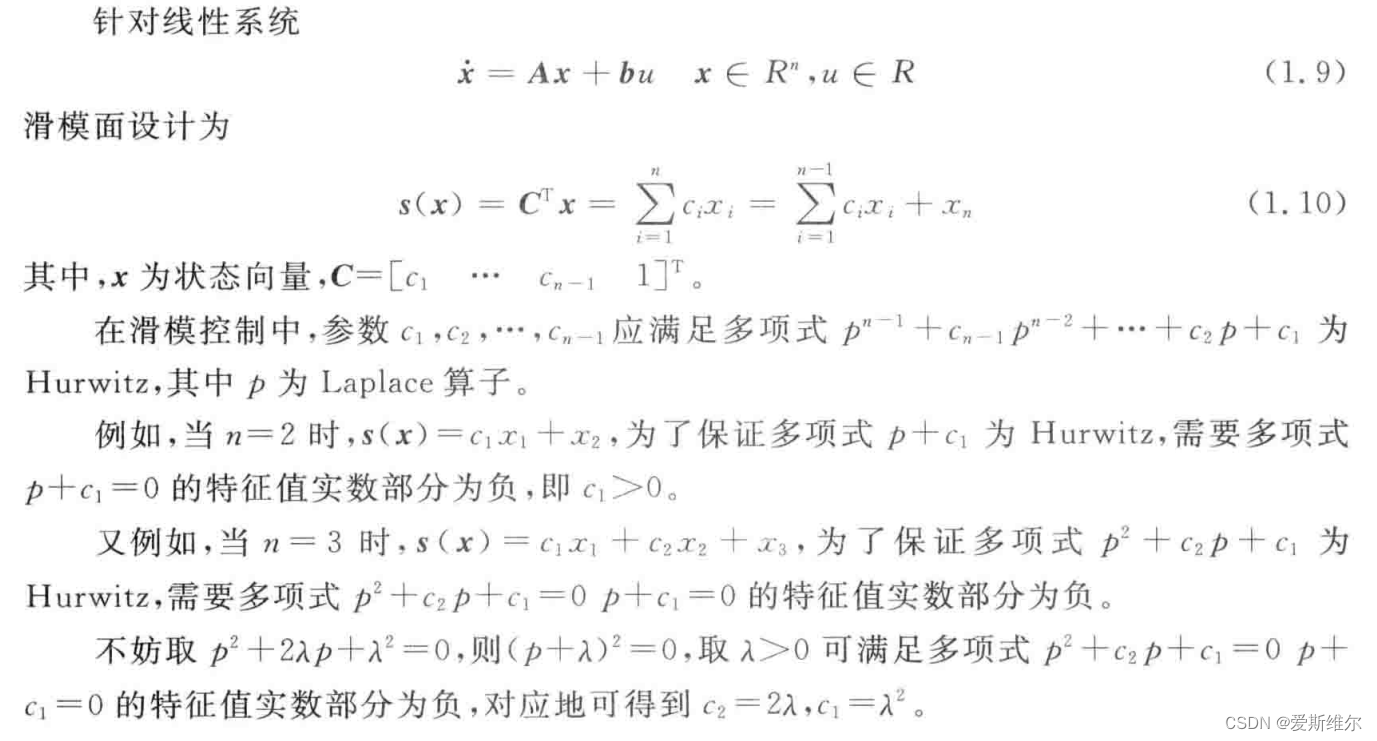 针对线性系统
ẋ = Ax + bu x ∈ Rⁿ, u ∈ R (1.9)
滑模面设计为
s(x) = Cᵀx = ∑ⁿᵢ₌₁ cᵢxᵢ = ∑ⁿ⁻¹ᵢ₌₁ cᵢxᵢ + xₙ (1.10)
其中,x 为状态向量,C=[c₁ ⋯ cₙ₋₁ 1]ᵀ。
在滑模控制中,参数 c₁,c₂,⋯,cₙ₋₁应满足多项式 pⁿ⁻¹+cₙ₋₁pⁿ⁻²+⋯+c₂p+c₁ 为
Hurwitz,其中 p 为 Laplace 算子。
例如,当 n=2 时,s(x)=c₁x₁+x₂,为了保证多项式 p+c₁ 为 Hurwitz,需要多项式
p+c₁=0 的特征值实数部分为负,即 c₁>0。
又例如,当 n=3 时,s(x)=c₁x₁+c₂x₂+x₃,为了保证多项式 p²+c₂p+c₁ 为
Hurwitz,需要多项式 p²+c₂p+c₁=0 p+c₁=0 的特征值实数部分为负。
不妨取 p²+2λp+λ²=0,则(p+λ)²=0,取 λ>0 可满足多项式 p²+c₂p+c₁=0 p+
c₁=0 的特征值实数部分为负,对应地可得到 c₂=2λ,c₁=λ²。
CSDN @爱斯维尔